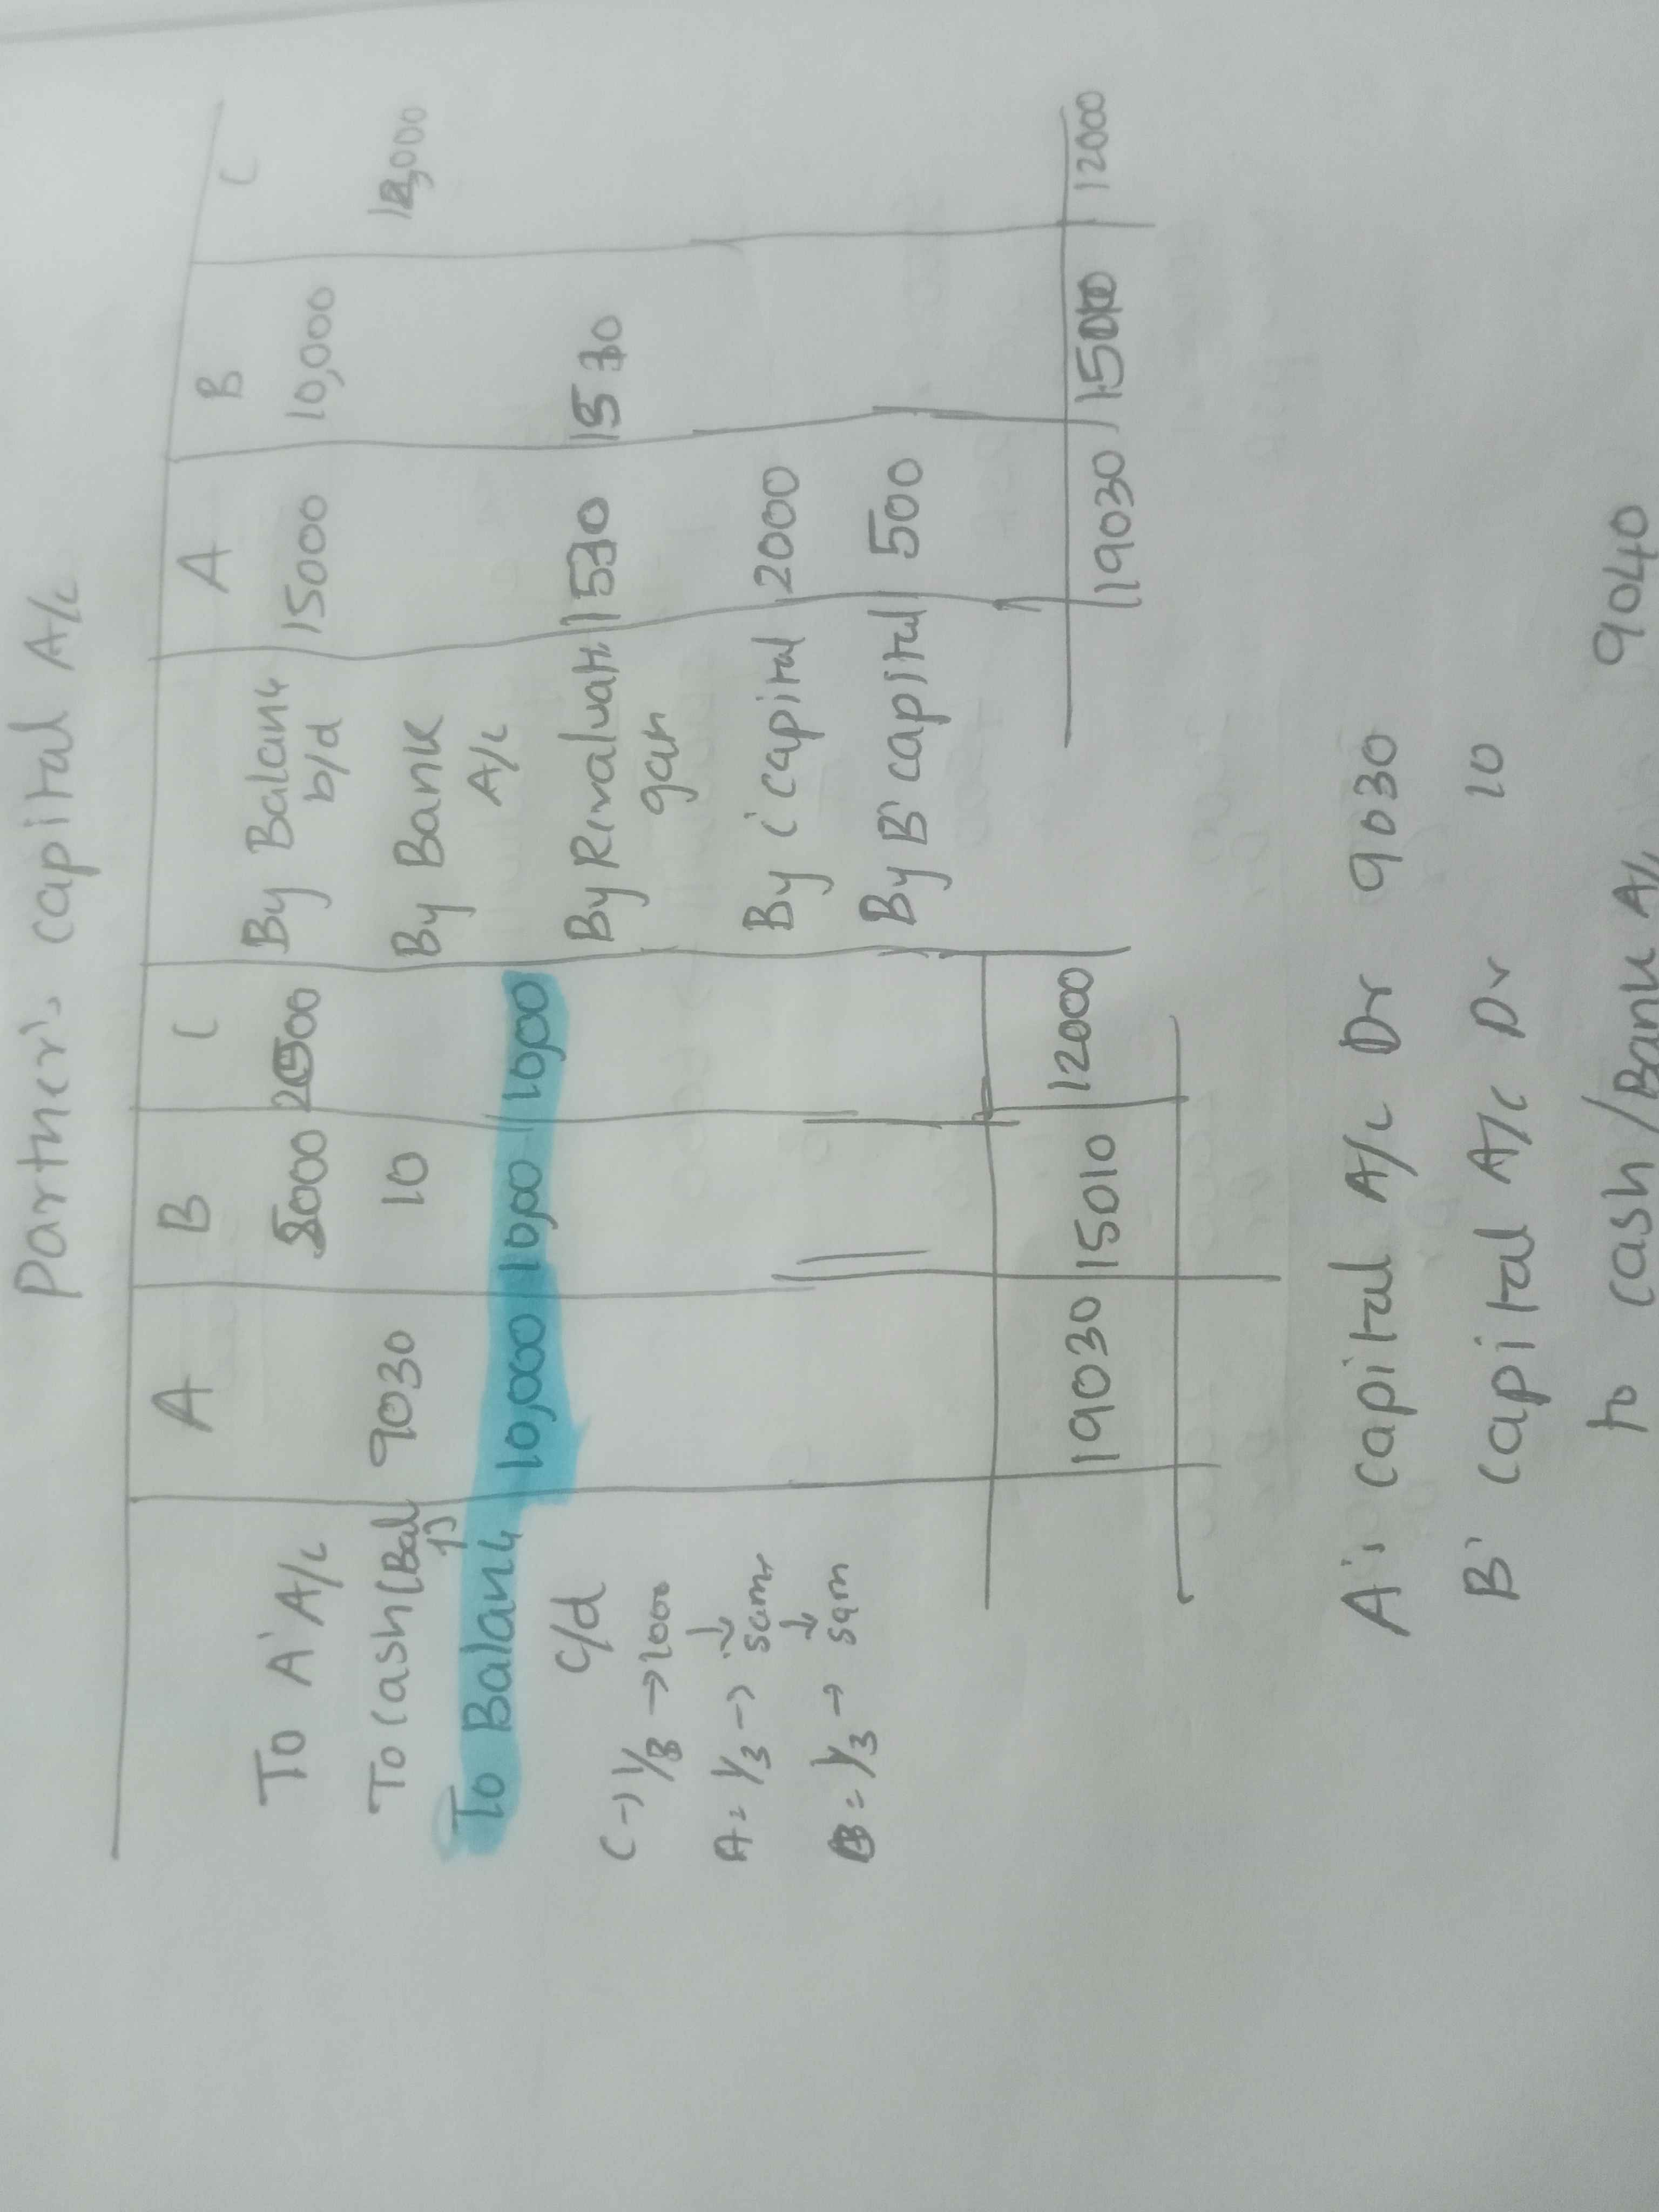 Partner's capital A/c
A B C A B C
To A' A/c 5000 2000 By Balance b/d 15000 10,000
To Cash (Bal f) 9030 10 By Bank A/c 12,000
To Balance c/d 10,000 10,000 10,000 By Revaluati gan 1530 1530
C → 1/3 → 1000
By C' capital 2000
A = 1/3 → same
By B' capital 500
B = 1/3 → sam
19030 15010 12000 19030 12000
A's capital A/c Dr 9030
B' capital A/c Dr 10
to cash/Bank A/c 9040